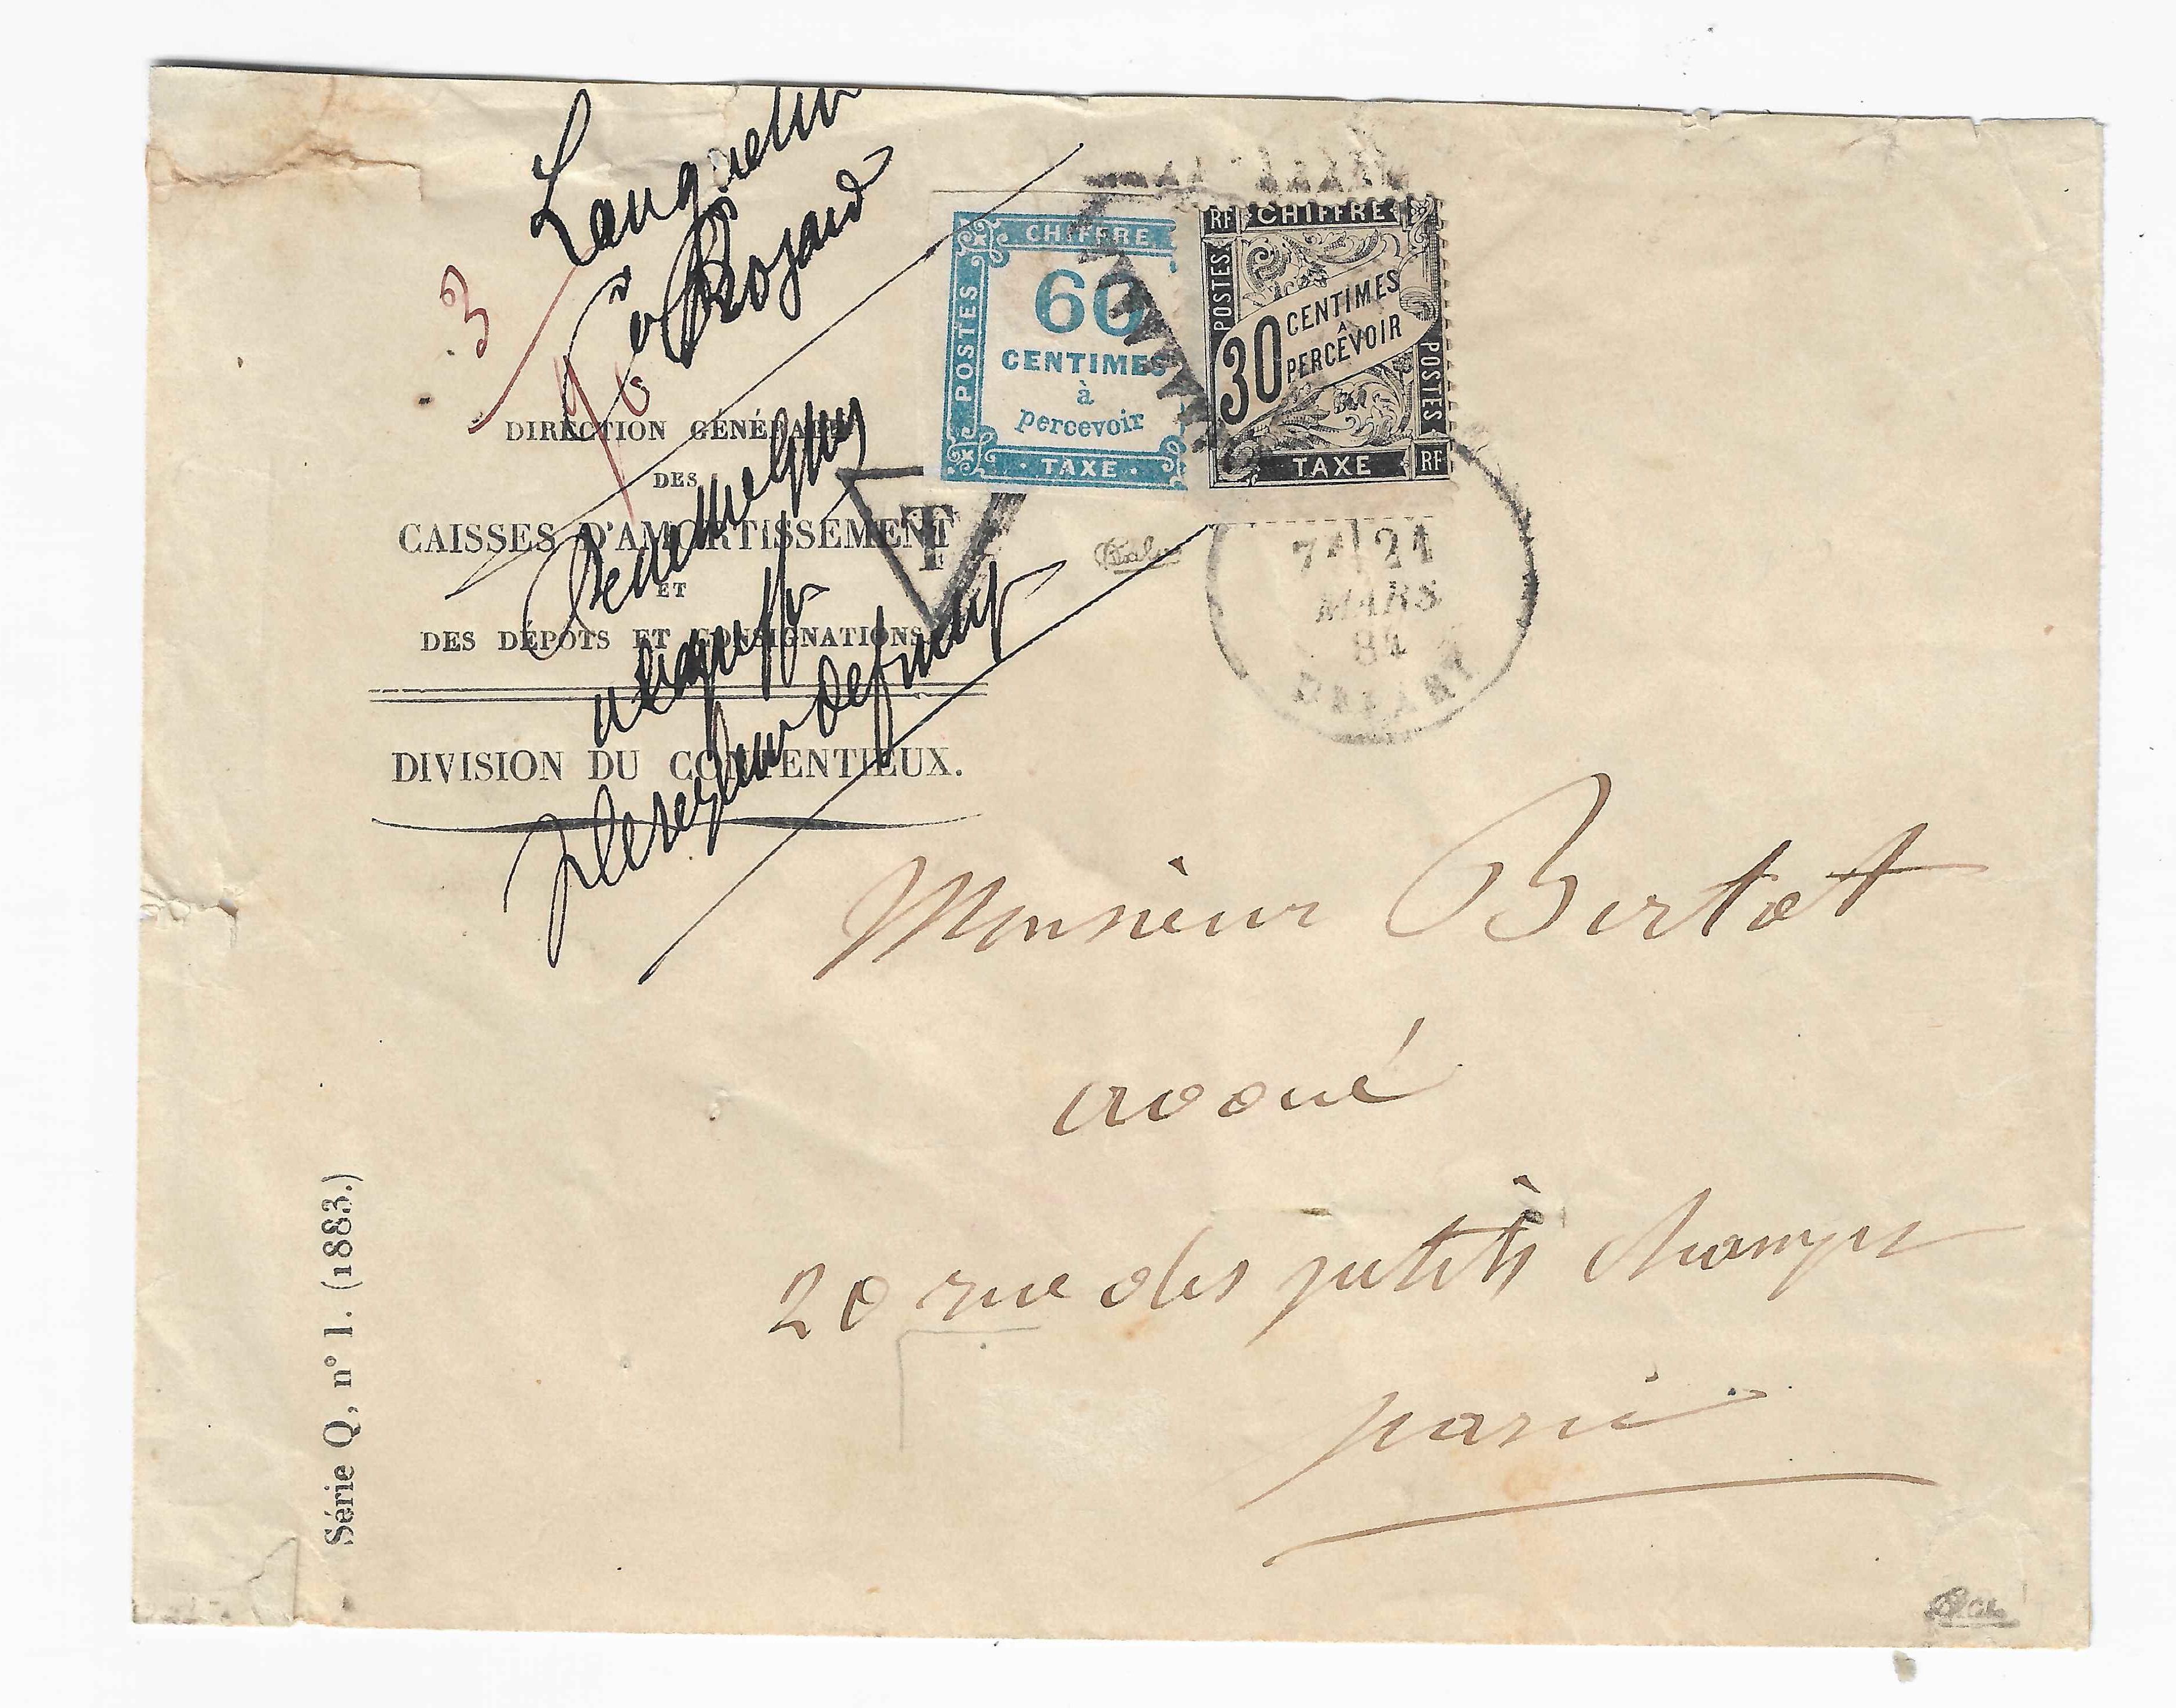 Languetin
à Rozaud
3
DIRECTION GÉNÉRALE
DES
CAISSES D'AMORTISSEMENT
ET
DES DÉPOTS ET CONSIGNATIONS
DIVISION DU CONTENTIEUX.
CHIFFRE
POSTES
60
CENTIMES
à
percevoir
· TAXE ·
RF CHIFFRE
POSTES
30 CENTIMES
À
PERCEVOIR
POSTES
TAXE RF
T
7E 21
MARS
84
DEPART
Monsieur Bertot
avoué
20 rue des petits champs
paris
Série Q, n° 1. (1883.)